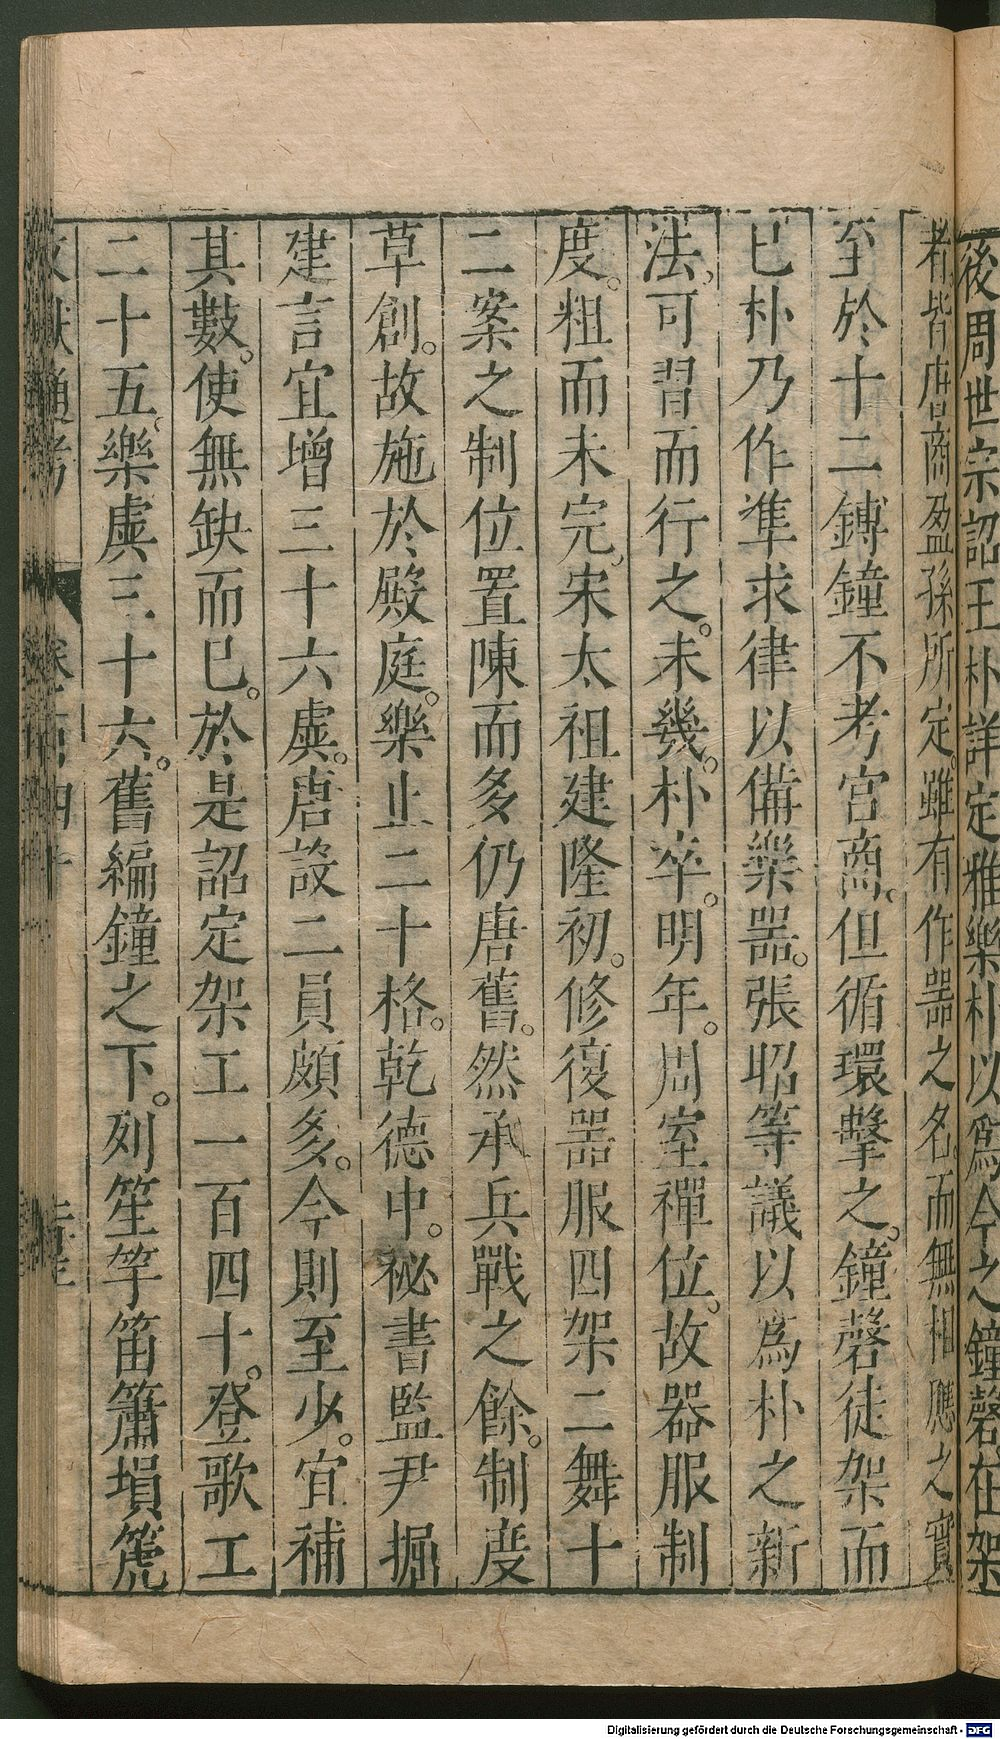 後周世宗詔王朴詳定雅樂朴以爲今之鐘磬在架
者皆唐商盈孫所定。雖有作器之名。而無相應之實
至於十二鏄鐘不考宮商。但循環擊之。鐘磬徒架而
已朴乃作準求律以備樂器。張昭等議以爲朴之新
法可習而行之。未幾。朴卒。明年。周室禪位。故器服制
度。粗而未完。宋太祖建隆初。修復器服四架二舞十
二案之制位置陳而多仍唐舊。然承兵戰之餘。制度
草創。故施於殿庭。樂止二十格。乾德中。祕書監尹掘
建言宜增三十六虡。唐設二員頗多。今則至少。宜補
其數。使無缺而已。於是詔定架工一百四十。登歌工
二十五。樂虡三十六。舊編鐘之下。列笙竽笛簫塤篪
Digitalisierung gefördert durch die Deutsche Forschungsgemeinschaft - DFG